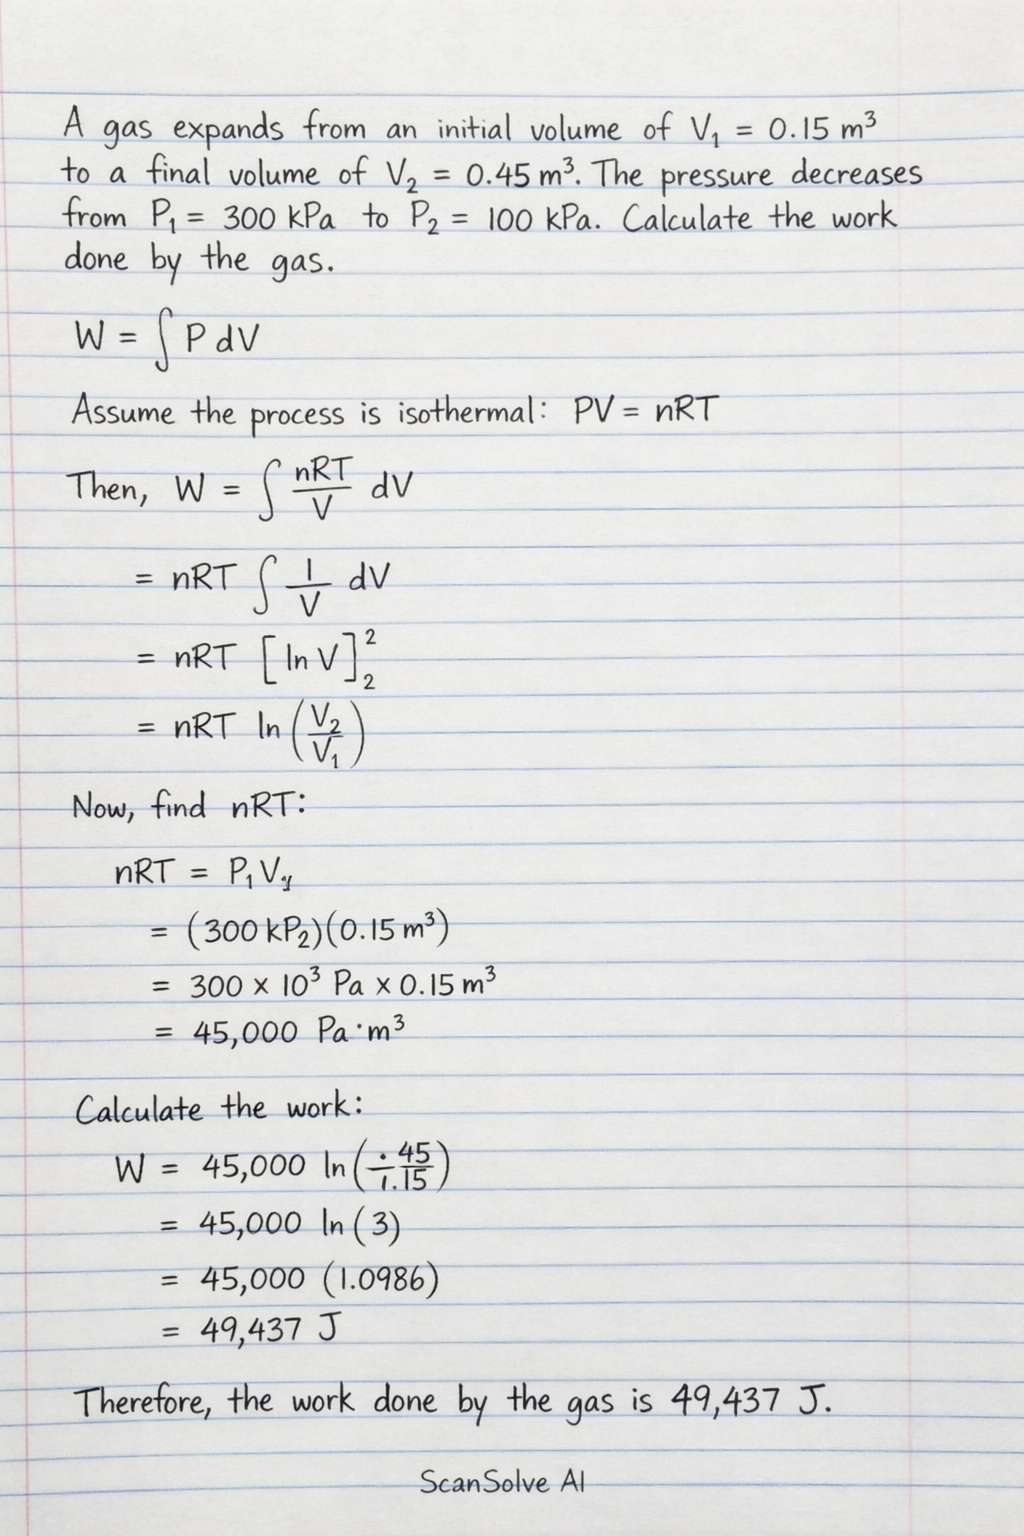 A gas expands from an initial volume of V₁ = 0.15 m³
to a final volume of V₂ = 0.45 m³. The pressure decreases
from P₁ = 300 kPa to P₂ = 100 kPa. Calculate the work
done by the gas.
W = ∫ P dV
Assume the process is isothermal: PV = nRT
Then, W = ∫ nRT/V dV
= nRT ∫ 1/V dV
= nRT [ln V]₂²
= nRT ln(V₂/V₁)
Now, find nRT:
nRT = P₁ V
= (300 kP₂)(0.15 m³)
= 300 × 10³ Pa × 0.15 m³
= 45,000 Pa·m³
Calculate the work:
W = 45,000 ln(÷45/1.15)
= 45,000 ln(3)
= 45,000 (1.0986)
= 49,437 J
Therefore, the work done by the gas is 49,437 J.
ScanSolve AI